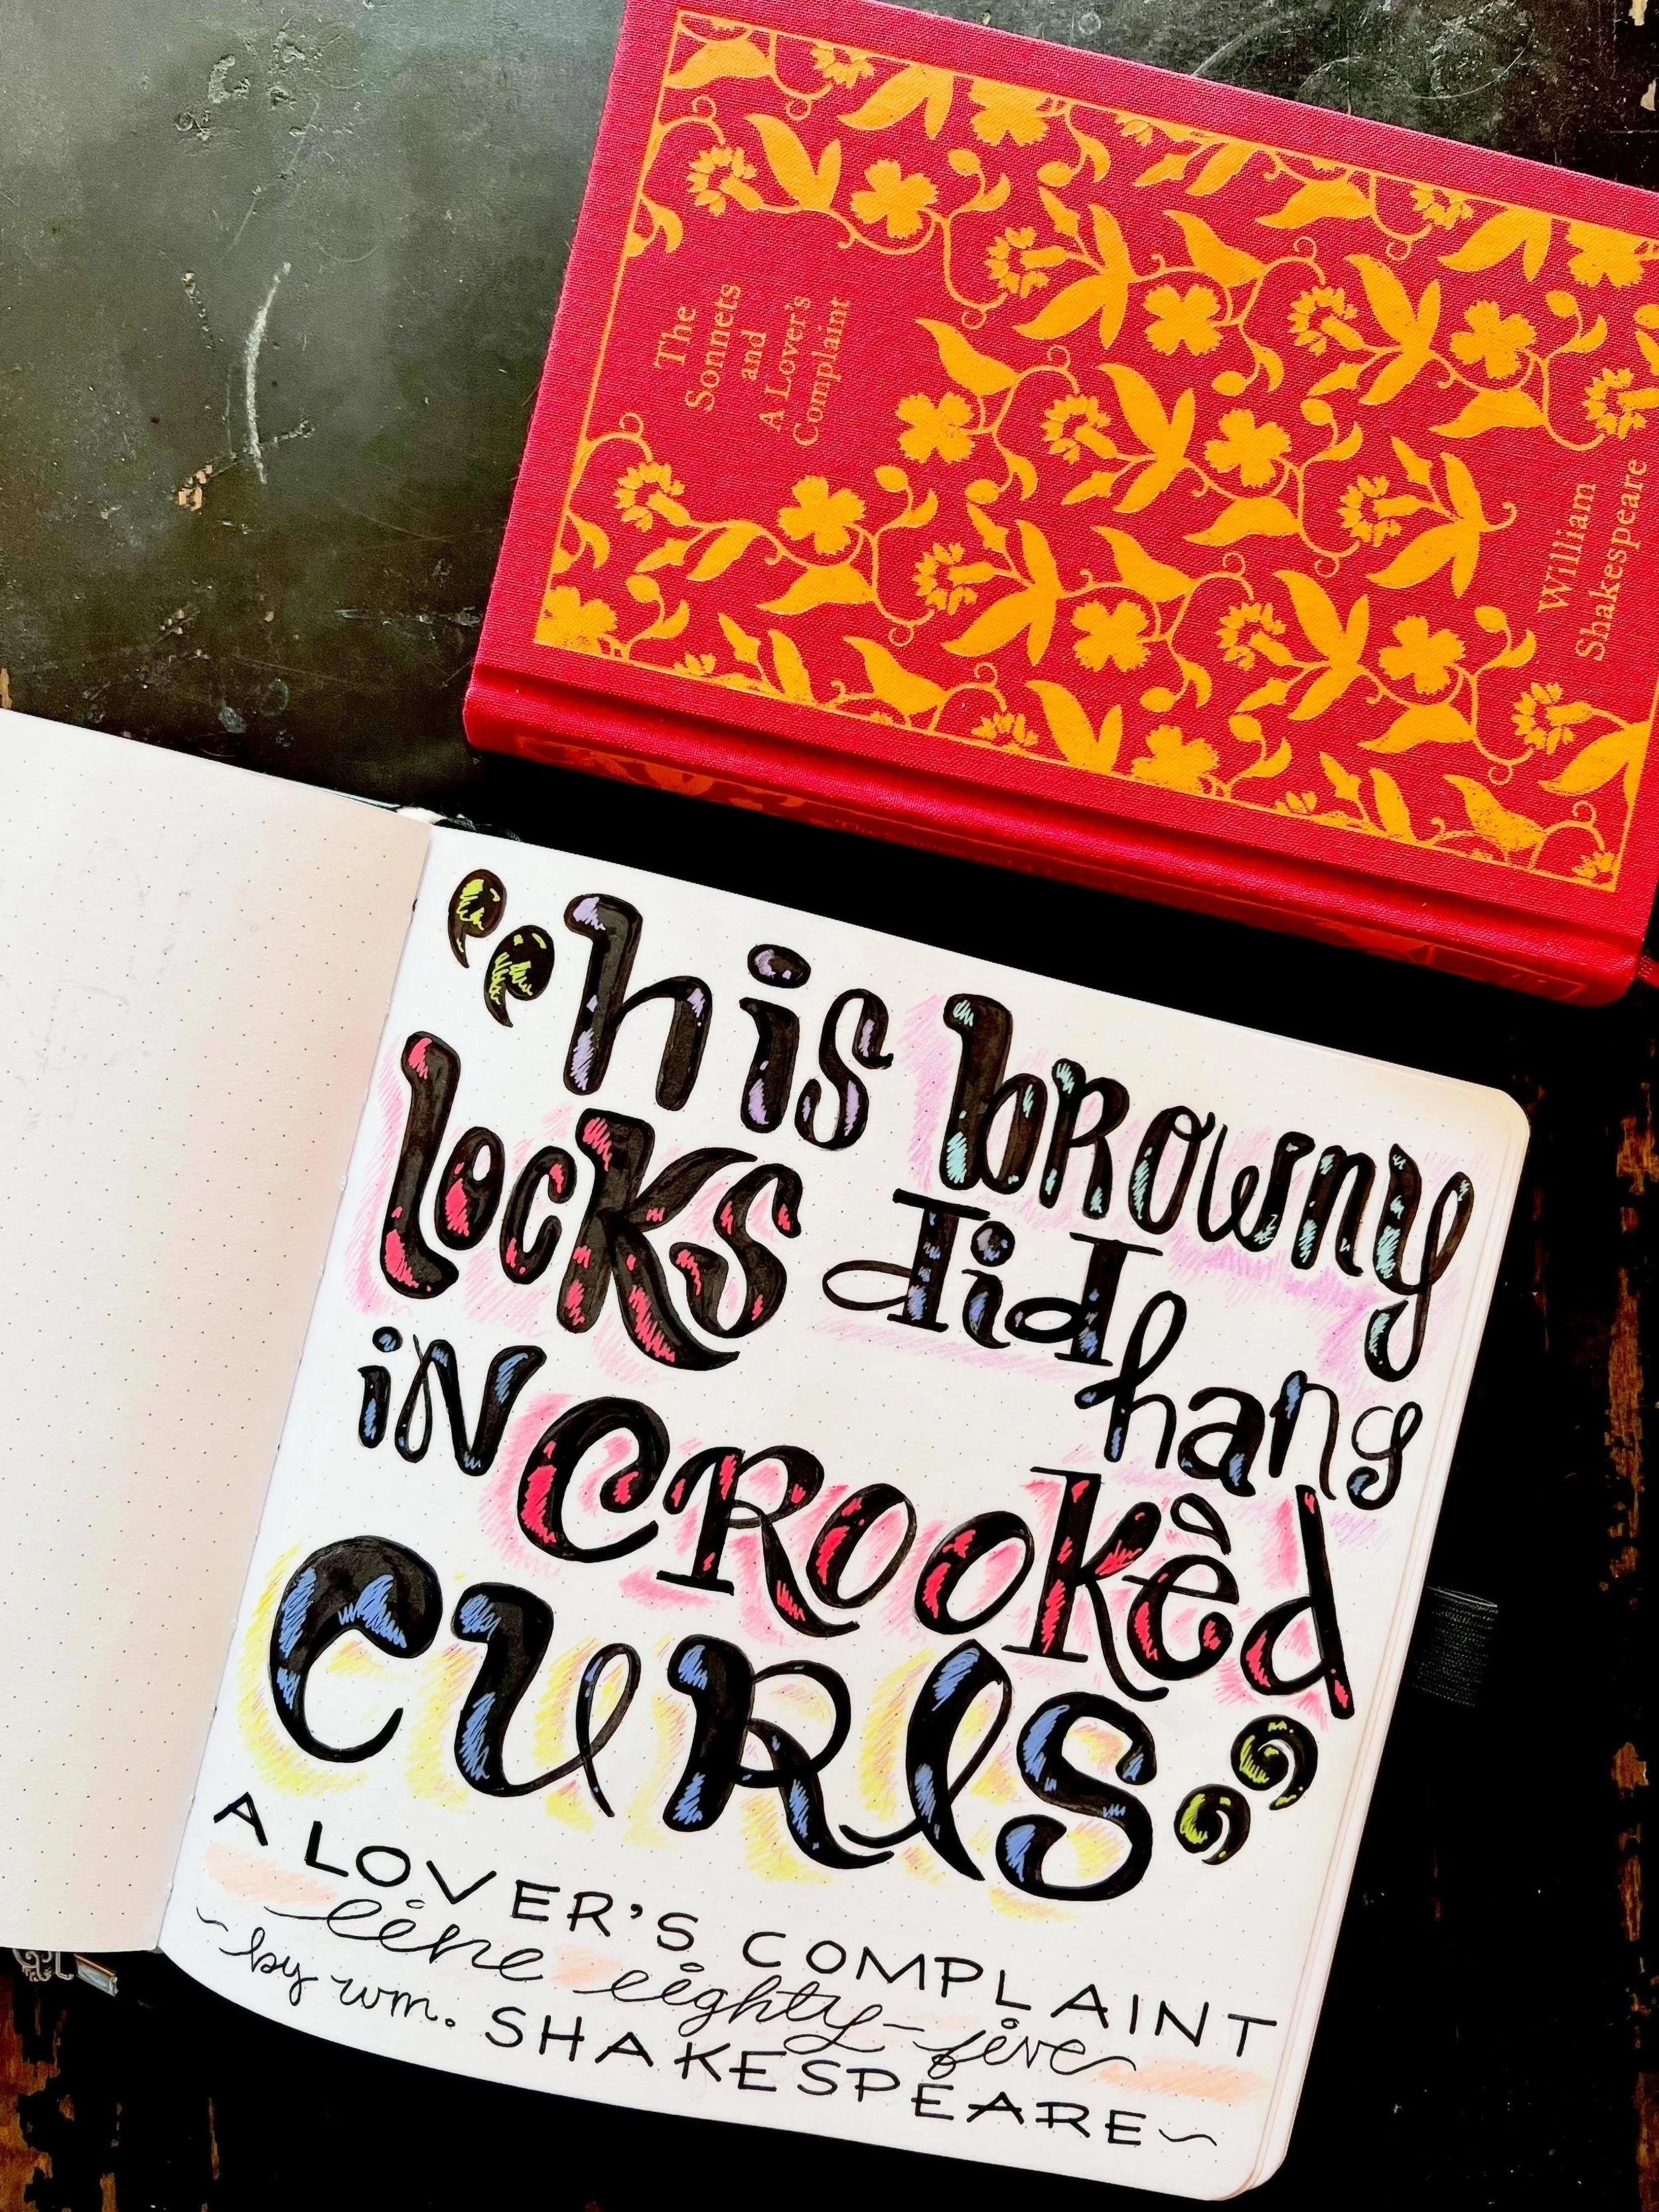 The
Sonnets
and
A Lover's
Complaint
William
Shakespeare
“his browny
locks did hang
in crookèd
curls”
A LOVER'S COMPLAINT
line eighty-five
~by wm. SHAKESPEARE~